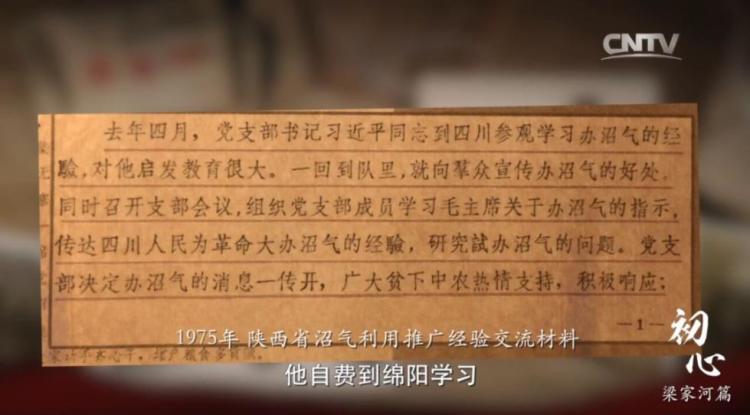 CNTV
去年四月，党支部书记习近平同志到四川参观学习办沼气的经
验，对他启发教育很大。一回到队里，就向群众宣传办沼气的好处，
同时召开支部会议，组织党支部成员学习毛主席关于办沼气的指示，
传达四川人民为革命大办沼气的经验，研究試办沼气的问题。党支
部决定办沼气的消息一传开，广大贫下中农热情支持，积极响应；
—1—
1975年 陕西省沼气利用推广经验交流材料
他自费到绵阳学习
初心
梁家河篇